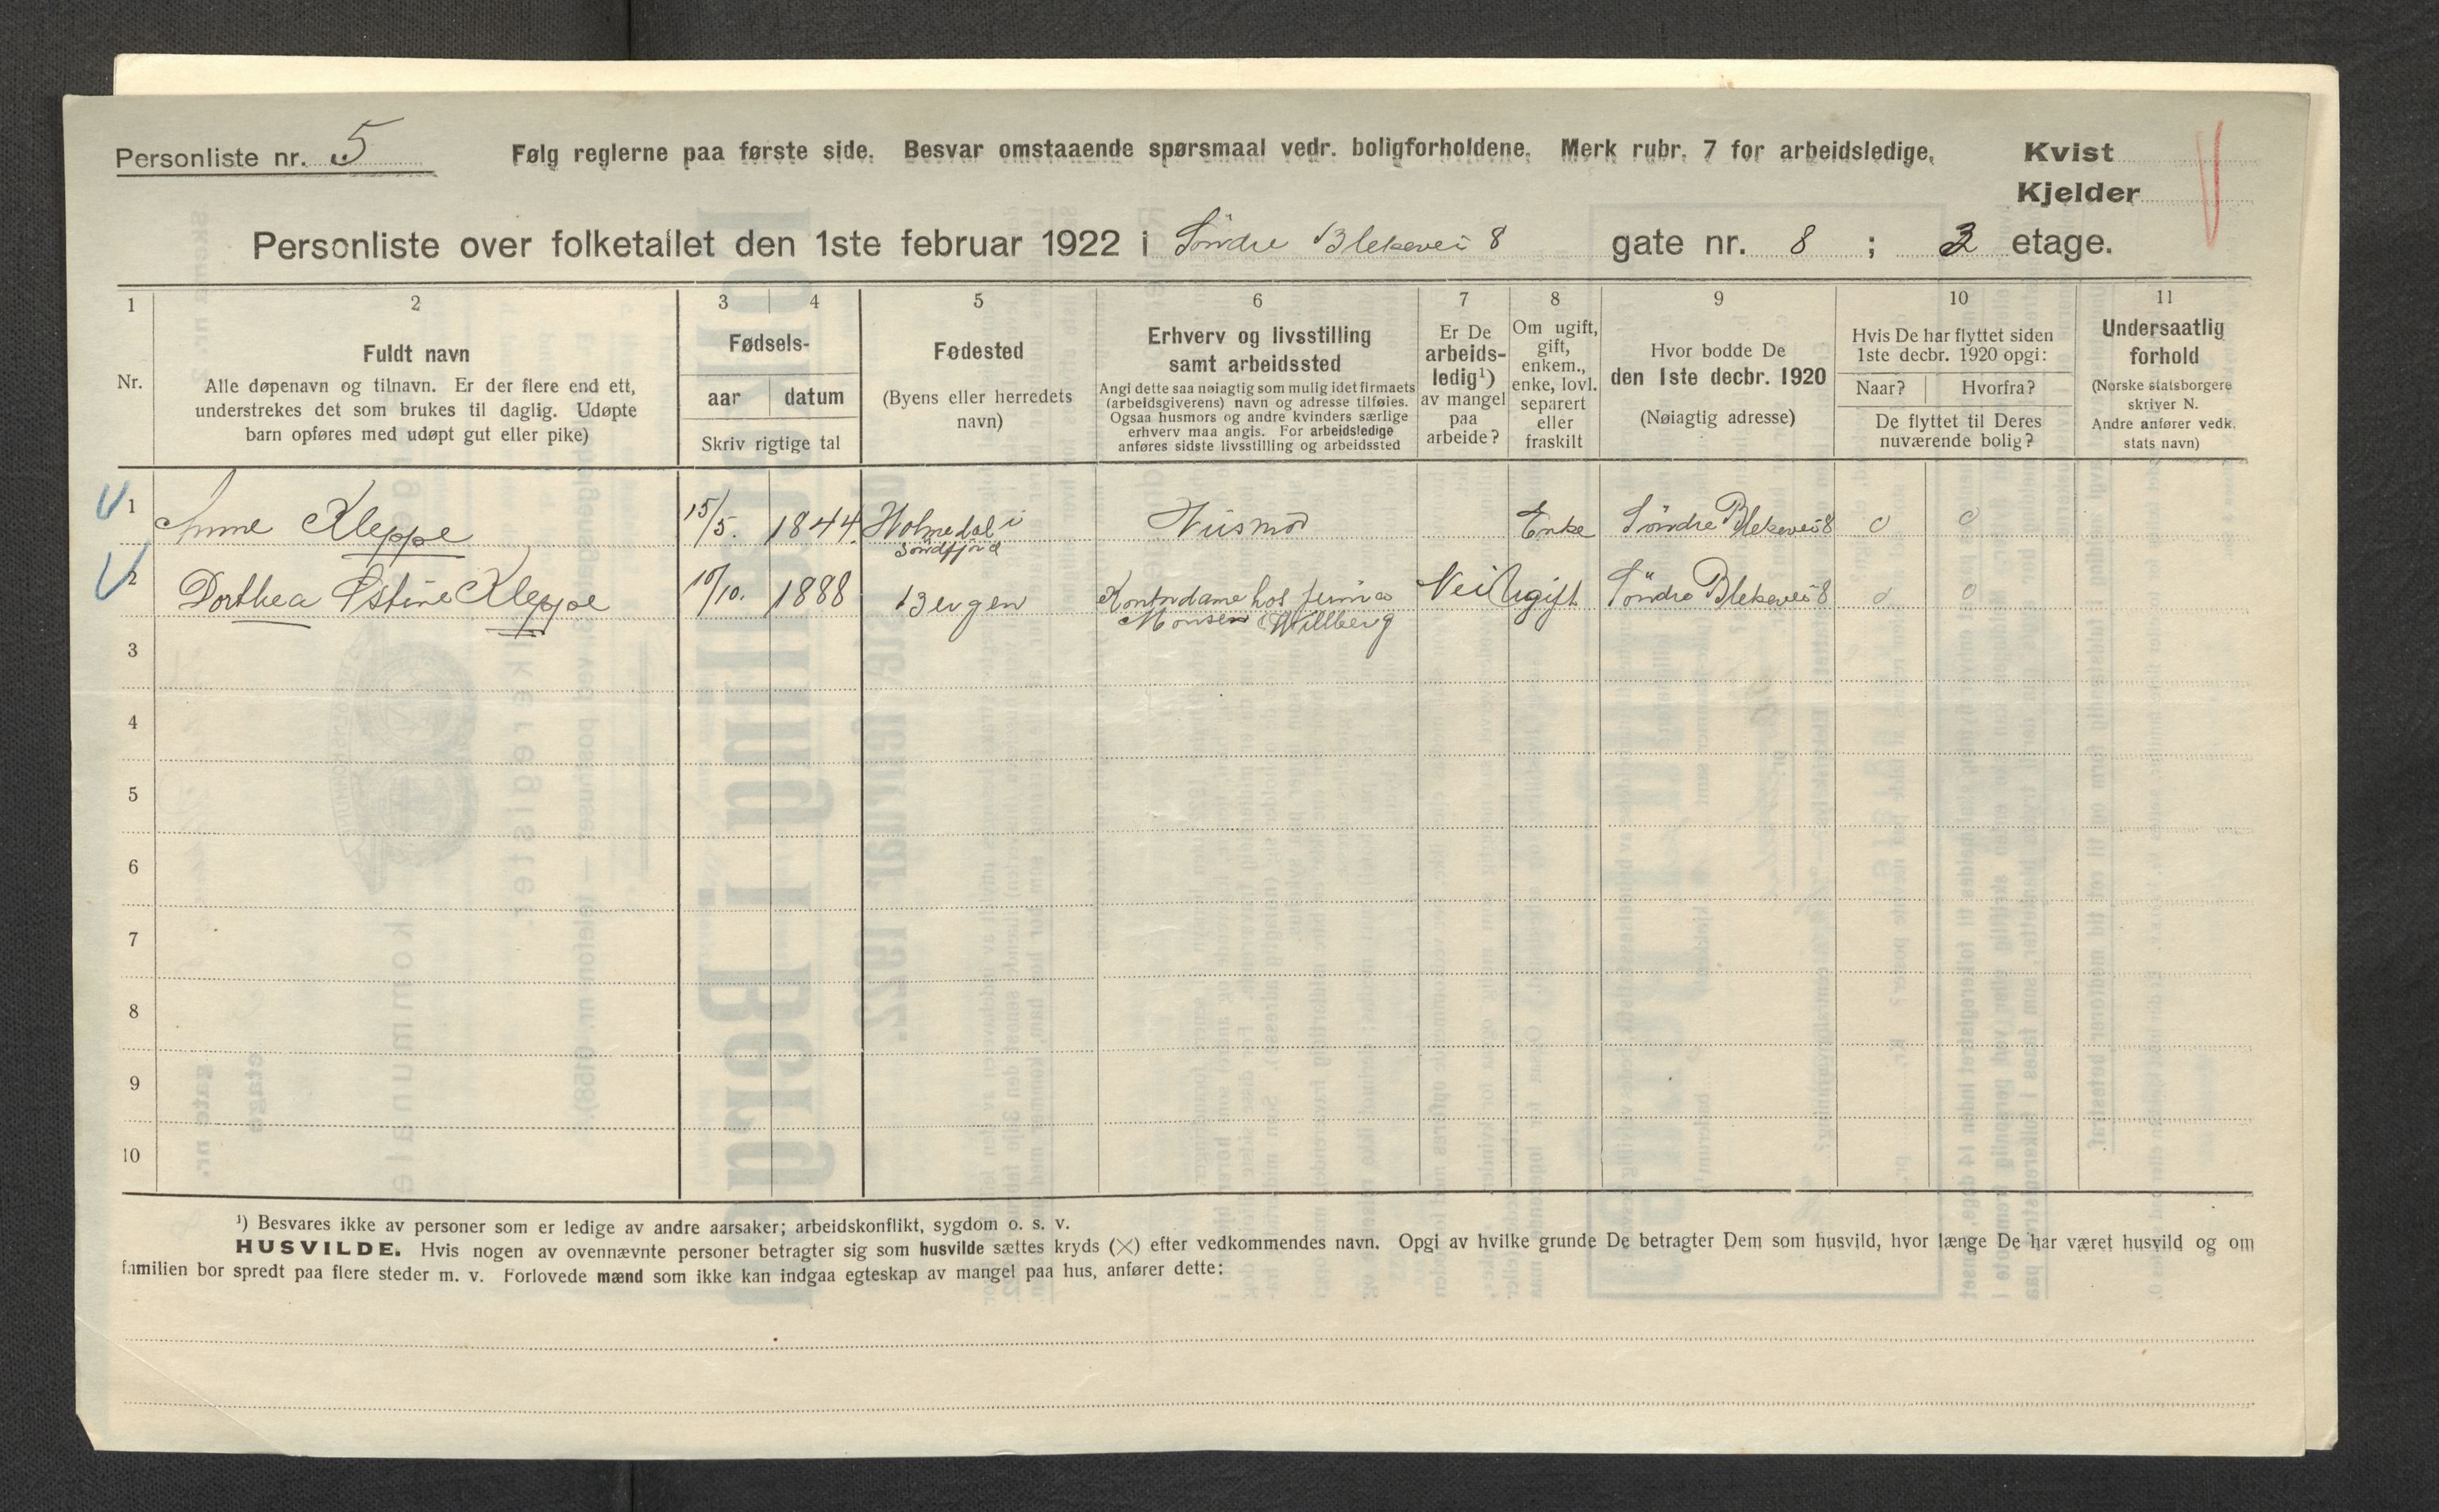 Personliste nr. 5
Følg reglerne paa første side. Besvar omstaaende spørsmaal vedr. boligforholdene. Merk rubr. 7 for arbeidsledige.
Kvist
Kjelder
Personliste over folketallet den 1ste februar 1922 i Søndre Blekevei 8 gate nr. 8 ; 2 etage.
1 2 3 4 5 6 7 8 9 10 11
Nr.
Fuldt navn
Alle døpenavn og tilnavn. Er der flere end ett,
understrekes det som brukes til daglig. Udøpte
barn opføres med udøpt gut eller pike)
Fødsels-
aar datum
Skriv rigtige tal
Fødested
(Byens eller herredets
navn)
Erhverv og livsstilling
samt arbeidssted
Angi dette saa nøiagtig som mulig idet firmaets
(arbeidsgiverens) navn og adresse tilføies.
Ogsaa husmors og andre kvinders særlige
erhverv maa angis. For arbeidsledige
anføres sidste livsstilling og arbeidssted
Er De
arbeids-
ledig¹)
av mangel
paa
arbeide?
Om ugift,
gift,
enkem.,
enke, lovl.
separert
eller
fraskilt
Hvor bodde De
den 1ste decbr. 1920
(Nøiagtig adresse)
Hvis De har flyttet siden
1ste decbr. 1920 opgi:
Naar? Hvorfra?
De flyttet til Deres
nuværende bolig?
Undersaatlig
forhold
(Norske statsborgere
skriver N.
Andre anfører vedk.
stats navn)
1 Anne Kleppe 15/5. 1844. Holmedal i Søndfjord Husmor Enke Søndre Blekevei 8 0 0
2 Dorthea Kleppe 10/10. 1888 Bergen Kontordame hos firma Monsen Willberg Nei Ugift Søndre Blekevei 8 0 0
3
4
5
6
7
8
9
10
¹) Besvares ikke av personer som er ledige av andre aarsaker; arbeidskonflikt, sygdom o. s. v.
HUSVILDE. Hvis nogen av ovennævnte personer betragter sig som husvilde sættes kryds (×) efter vedkommendes navn. Opgi av hvilke grunde De betragter Dem som husvild, hvor længe De har været husvild og om
familien bor spredt paa flere steder m. v. Forlovede mænd som ikke kan indgaa egteskap av mangel paa hus, anfører dette: